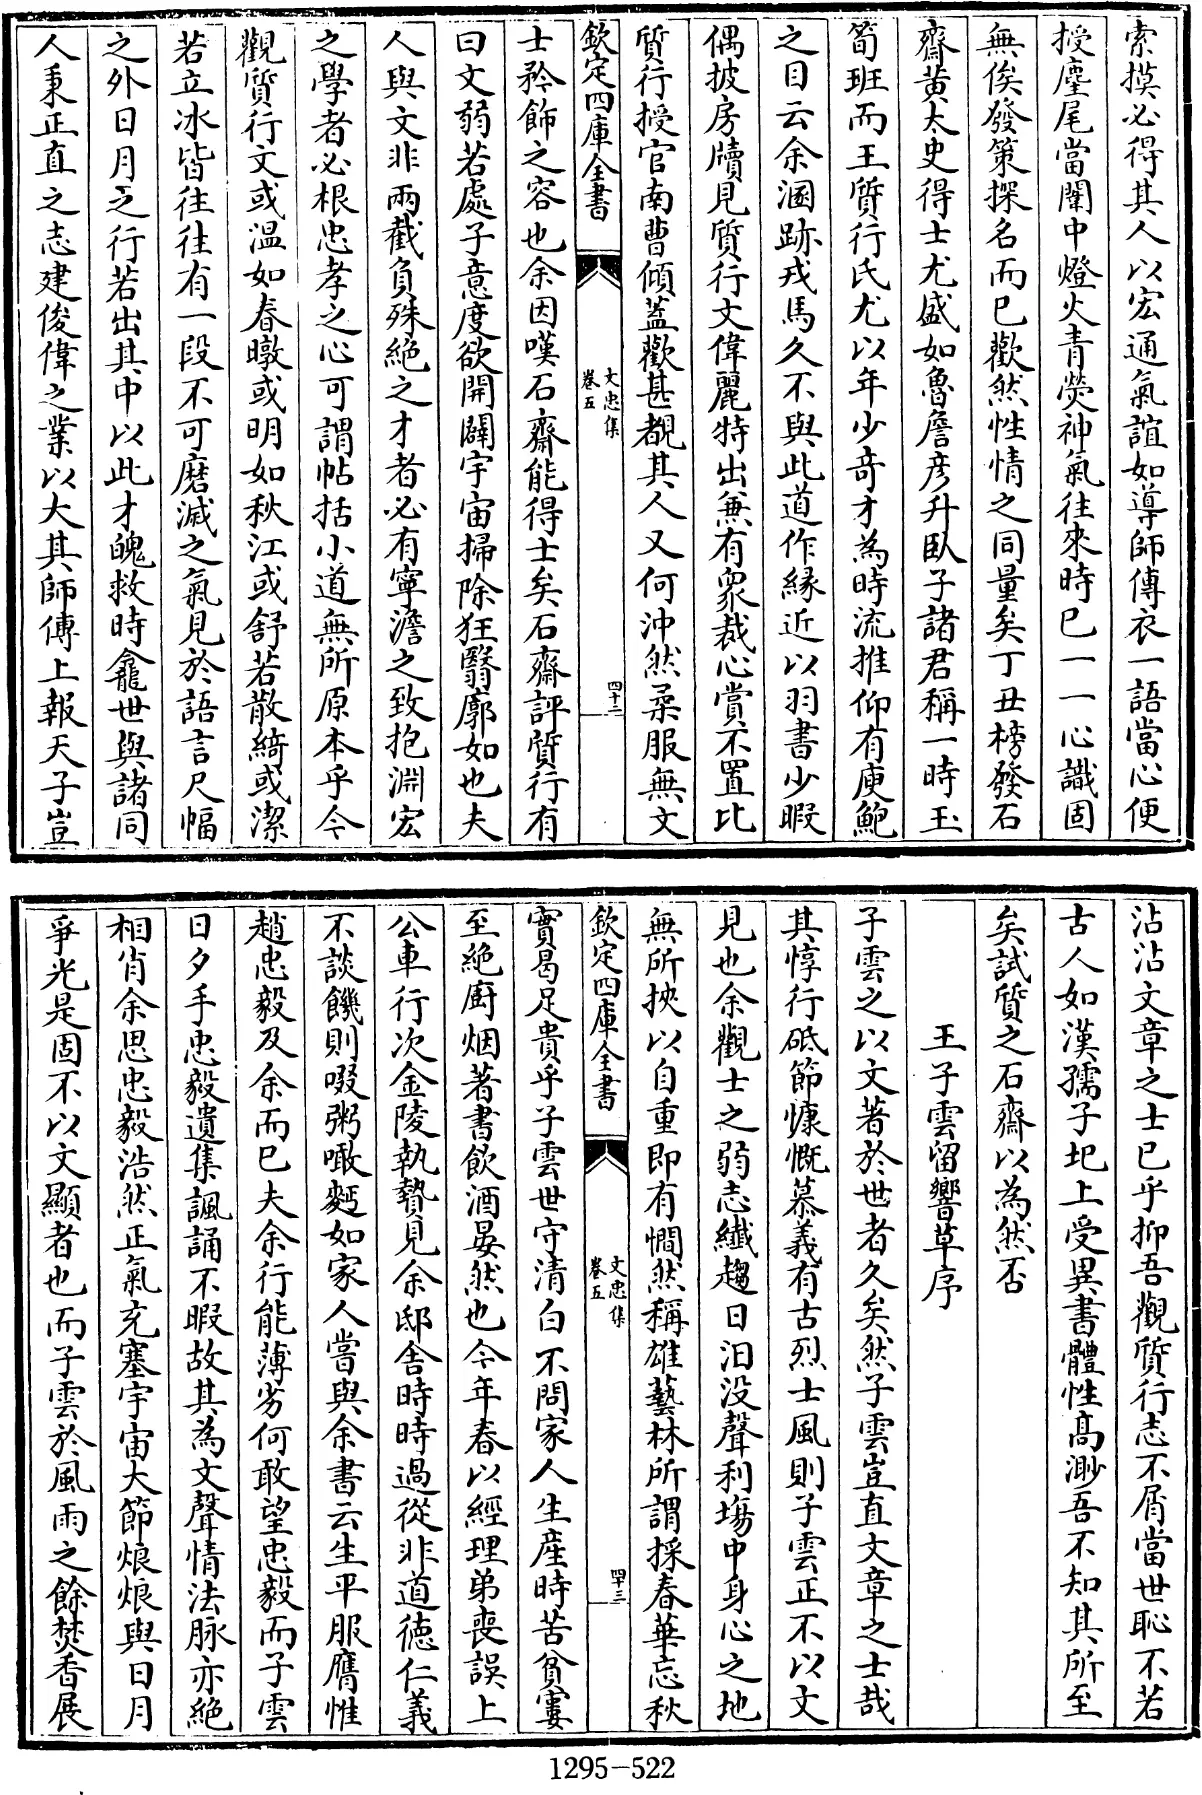 索摸必得其人以宏通氣誼如導師傅衣一語當心便
授麈尾當闈中燈火青熒神氣往來時已一一心識固
無俟發策探名而已歡然性情之同量矣丁丑榜發石
齋黄太史得士尤盛如魯詹彦升臥子諸君稱一時玉
筍班而王質行氏尤以年少竒才為時流推仰有庾鮑
之目云余溷跡戎馬久不與此道作縁近以羽書少暇
偶披房牘見質行文偉麗特出兼有衆裁心賞不置比
質行授官南曹傾葢歡甚覩其人又何沖然柔服無文
欽定四庫全書
文忠集
卷五
四十二
士矜飾之容也余因嘆石齋能得士矣石齋評質行有
曰文弱若處子意度欲開闢宇宙掃除狂翳廓如也夫
人與文非兩截負殊絶之才者必有寧澹之致抱淵宏
之學者必根忠孝之心可謂帖括小道無所原本乎今
觀質行文或温如春暾或明如秋江或舒若散綺或潔
若立冰皆往往有一段不可磨滅之氣見於語言尺幅
之外日月之行若出其中以此才魄救時龕世與諸同
人秉正直之志建俊偉之業以大其師傅上報天子豈
沾沾文章之士已乎抑吾觀質行志不屑當世恥不若
古人如漢孺子圯上受異書體性高渺吾不知其所至
矣試質之石齋以為然否
王子雲留響草序
子雲之以文著於世者久矣然子雲豈直文章之士哉
其惇行砥節慷慨慕義有古烈士風則子雲正不以文
見也余觀士之弱志纎趨日汩没聲利塲中身心之地
無所挾以自重即有憪然稱雄藝林所謂採春華忘秋
欽定四庫全書
文忠集
卷五
四十三
實曷足貴乎子雲世守清白不問家人生産時苦貧窶
至絶廚烟著書飲酒晏然也今年春以經理弟喪誤上
公車行次金陵執贄見余邸舍時時過從非道德仁義
不談饑則啜粥噉麫如家人嘗與余書云生平服膺惟
趙忠毅及余而已夫余行能薄劣何敢望忠毅而子雲
日夕手忠毅遺集諷誦不暇故其為文聲情法脉亦絶
相肖余思忠毅浩然正氣充塞宇宙大節烺烺與日月
爭光是固不以文顯者也而子雲於風雨之餘焚香展
1295-522